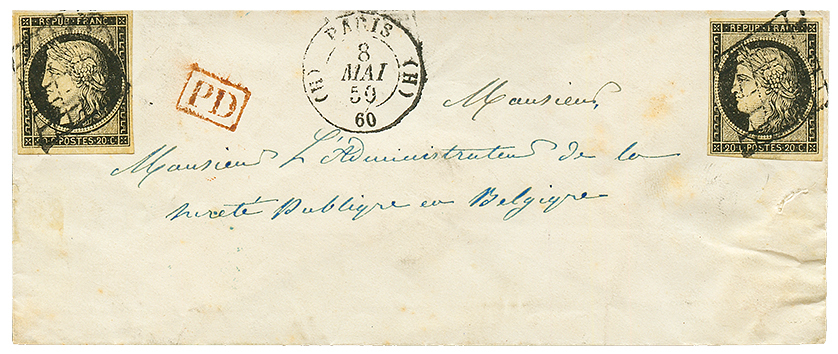 REPUB. FRANC.
20 C. POSTES 20 C.
PD
PARIS
(H) (H)
8
MAI
50
60
REPUB. FRANC.
20 C. POSTES 20 C.
Monsieur,
Monsieur L'Administrateur de la
sureté Publique en Belgique